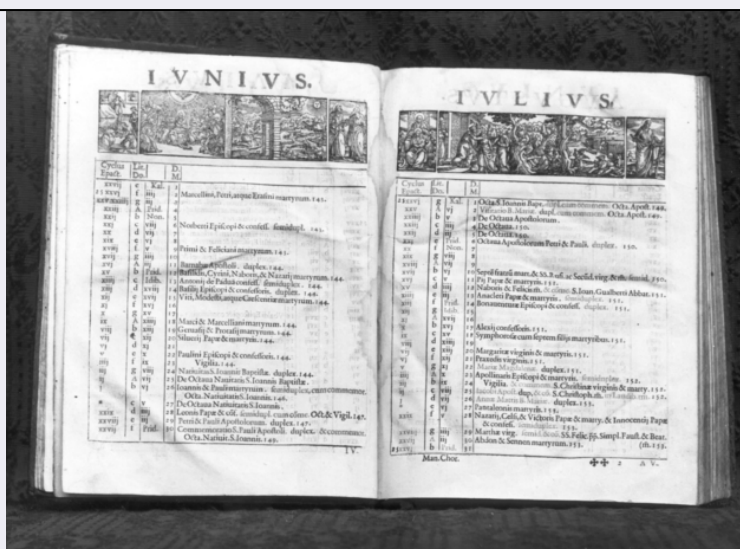 IVNIVS.
Cyclus Lit. D.
Epact. Do. M.
xxvij e Kal. 1
25 xxvj f iiij 2 Marcellini, Petri, atque Erasmi martyrum. 141.
xxv.xxiiij g iij 3
xxiij A Prid. 4
xxij b Non. 5
xxj c viij 6 Norberti Episcopi & confess. semidupl. 143.
xx d vij 7
xix e vj 8
xviij f v 9 Primi & Feliciani martyrum. 143.
xvij g iiij 10
xvj A iij 11 Barnabæ Apostoli. duplex. 144.
xv b Prid. 12 Basilidis, Cyrini, Naboris, & Nazarij martyrum. 144.
xiiij c Idib. 13 Antonij de Padua confess. semiduplex. 144.
xiij d xviij 14 Basilij Episcopi & confessoris. duplex. 144.
xij e xvij 15 Viti, Modesti, atque Crescentiæ martyrum. 144.
xj f xvj 16
x g xv 17
ix A xiiij 18 Marci & Marcelliani martyrum. 144.
viij b xiij 19 Geruasij & Protasij martyrum. 144.
vij c xij 20 Siluerij Papæ & martyris. 144.
vj d xj 21
v e x 22 Paulini Episcopi & confessoris. 144.
iiij f ix 23 Vigilia. 144.
iij g viij 24 Natiuitas S. Ioannis Baptistæ. duplex. 144.
ij A vij 25 De Octaua Natiuitatis S. Ioannis Baptistæ.
j b vj 26 Ioannis & Pauli martyrum. semiduplex, cum commemor.
Octa. Natiuitatis S. Ioannis. 146.
* c v 27 De Octaua Natiuitatis S. Ioannis.
xxix d iiij 28 Leonis Papæ & cōf. semidupl. cum cōme. Oct. & Vigil. 147.
xxviij e iij 29 Petri & Pauli Apostolorum. duplex. 147.
xxvij f Prid. 30 Commemoratio S. Pauli Apostoli. duplex. & commemor.
Octa. Natiuit. S. Ioannis. 149.
IV.
IVLIVS.
Cyclus Lit. D.
Epact. Do. M.
g Kal. 1 Octa. S. Ioannis Bapt. dupl. cum commem. Octa. Apost. 149.
A vj 2 Visitatio B. Mariæ. dupl. cum commem. Octa. Apost. 149.
b v 3 De Octaua Apostolorum.
c iiij 4 De Octaua. 150.
d iij 5 De Octaua. 150.
e Prid. 6 Octaua Apostolorum Petri & Pauli. duplex. 150.
f Non. 7
g viij 8
A vij 9
b vj 10 Septē fratrū mart. & SS. Rufi. ac Secūd. virg. & mart. semid. 150.
c v 11 Pij Papæ & martyris. 151.
d iiij 12 Naboris & Felicis m. & cōme. S. Ioan. Gualberti Abbat. 151.
e iij 13 Anacleti Papæ & martyris. semiduplex. 151.
f Prid. 14 Bonauenturæ Episcopi & confess. duplex. 151.
g Idib. 15
A xvij 16
b xvj 17 Alexij confessoris. 151.
c xv 18 Symphorosæ cum septem filijs martyribus. 151.
d xiiij 19
e xiij 20 Margaritæ virginis & martyris. 151.
f xij 21 Praxedis virginis. 151.
g xj 22 Mariæ Magdalenæ. duplex. 151.
A x 23 Apollinaris Episcopi & martyris. semiduplex. 152.
b ix 24 Vigilia, & commem. S. Christinæ virginis & marty. 152.
c viij 25 Iacobi Apost. dup. & cōm. S. Christoph. m. 152.
d vij 26 Annæ Matris B. Mariæ. duplex. 153.
e vj 27 Pantaleonis martyris. 153.
f v 28 Nazarij, Celsi, & Victoris Papæ & marty. & Innocentij Papæ
& confess. semiduplex. 153.
g iiij 29 Marthæ virg. semid. & cō. SS. Felic. pp. Simpl. Faust. & Beat.
A iij 30 Abdon & Sennen martyrum. 153. (m. 153.
b Prid. 31
Man. Chor. ✠✠ 2 AV.